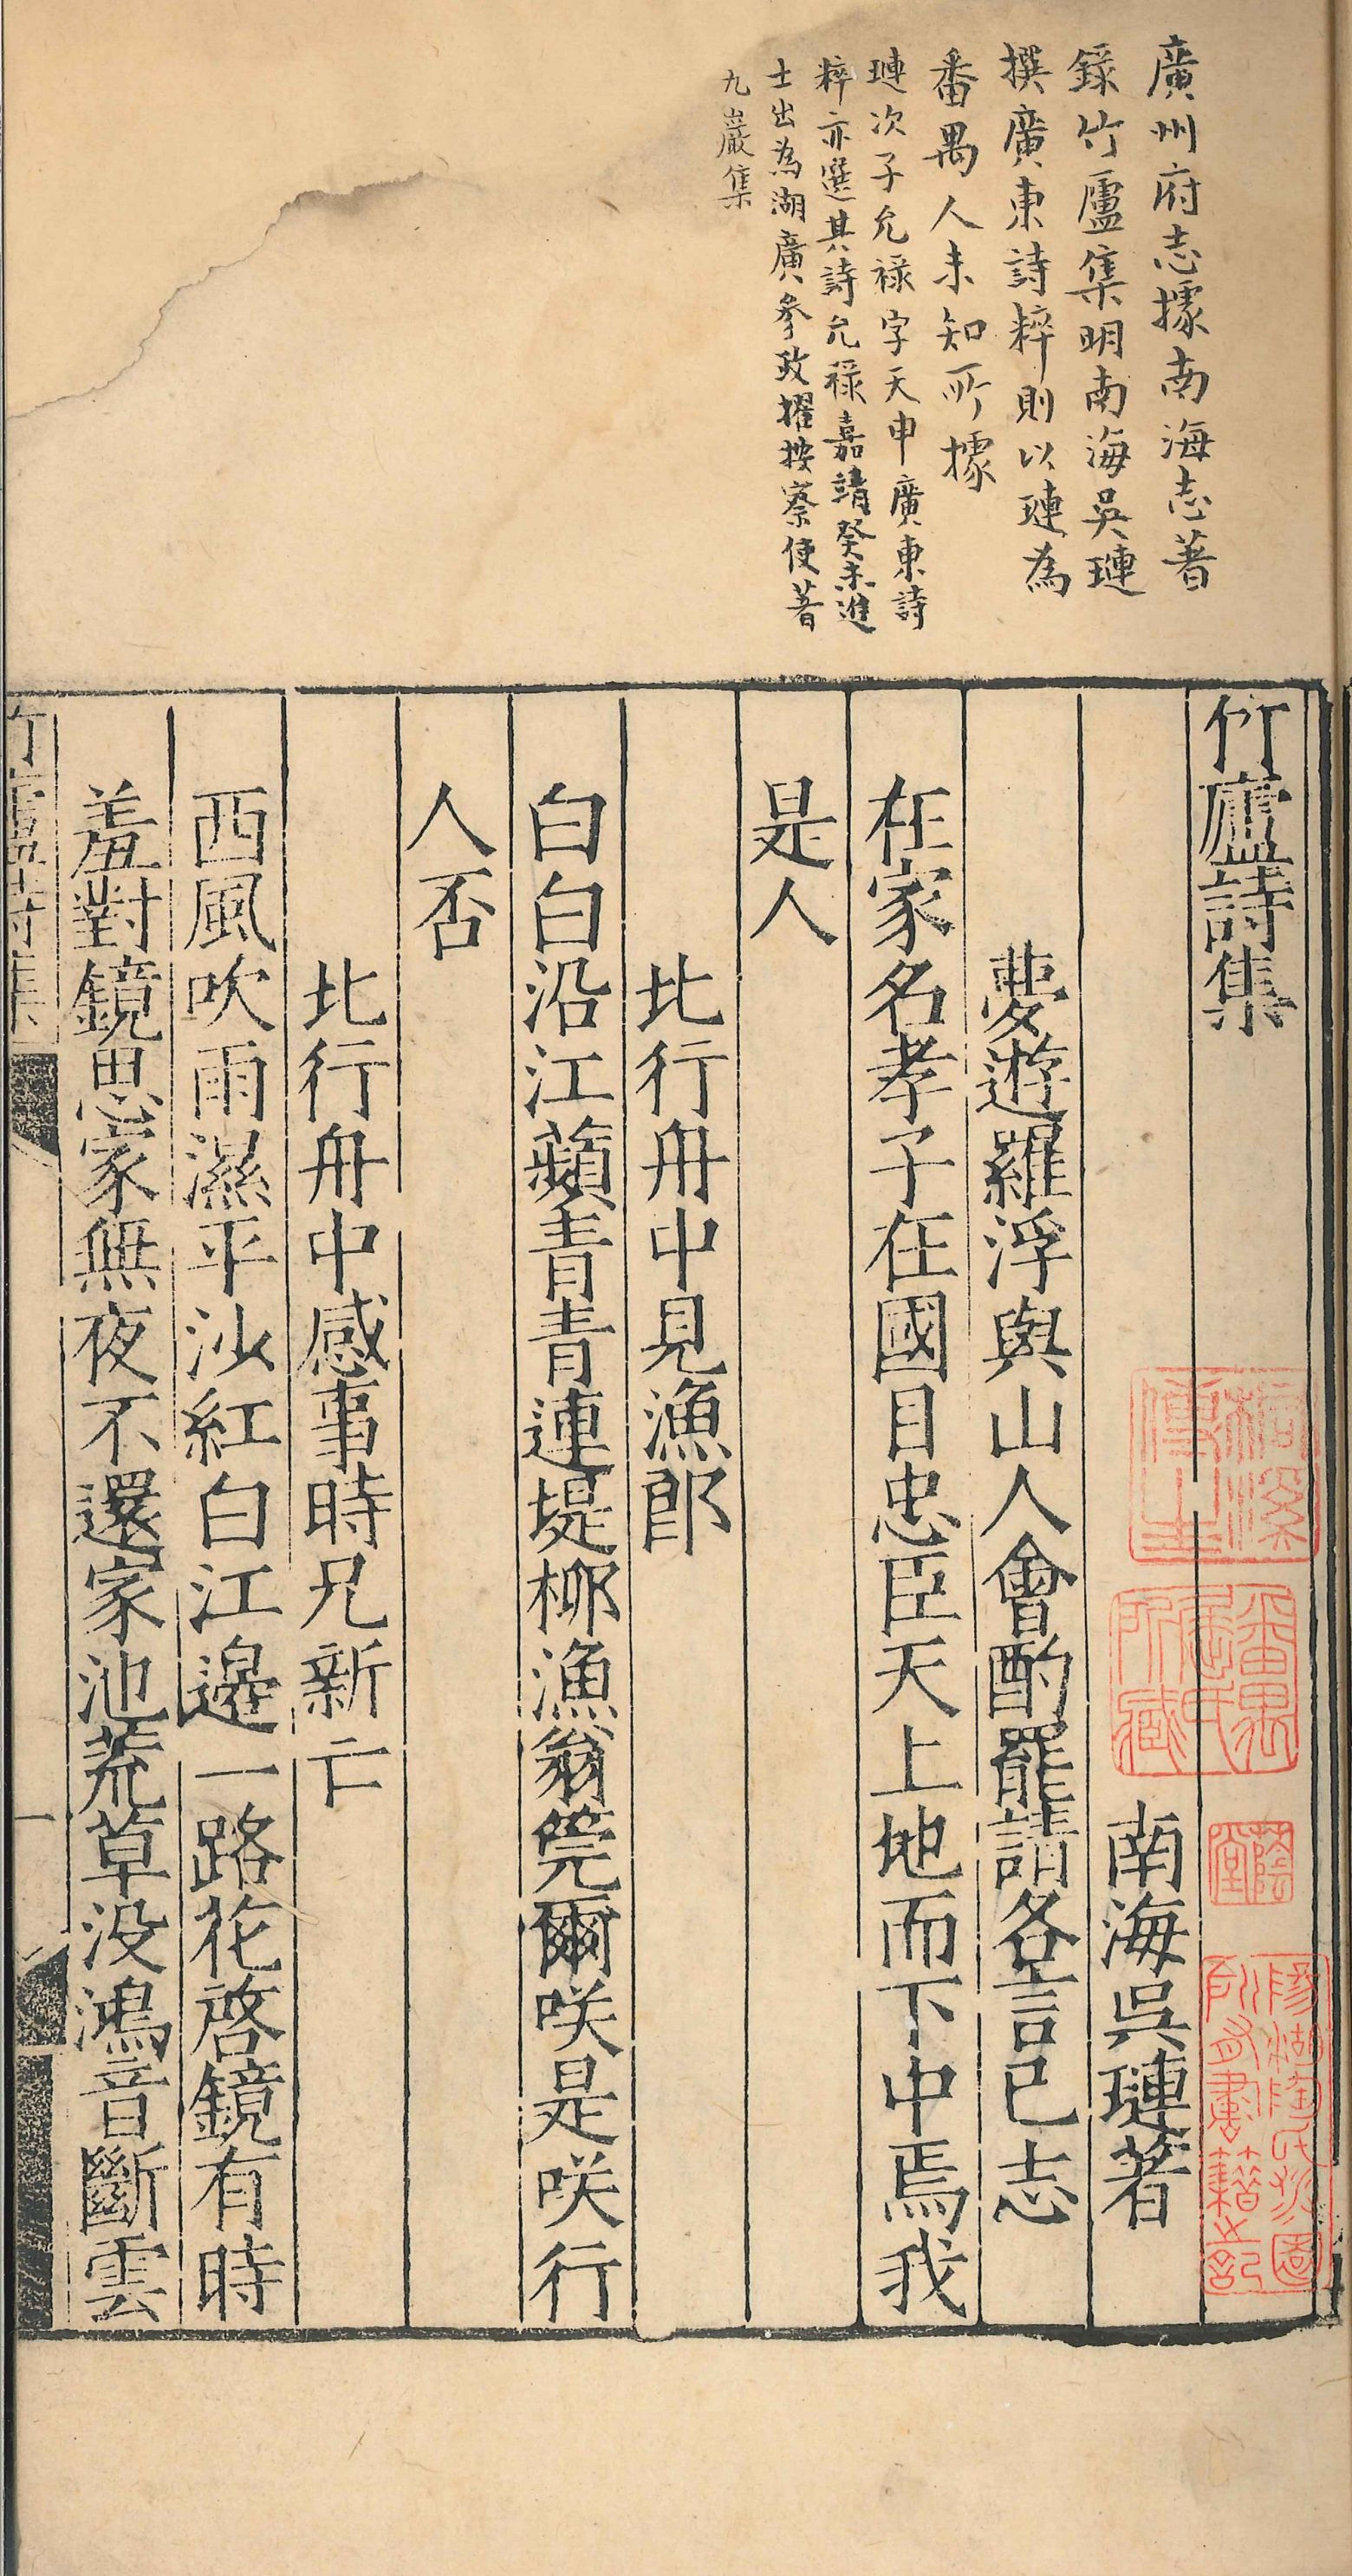 廣州府志據南海志著
錄竹廬集明南海吳璉
撰廣東詩粹則以璉為
番禺人未知所據
璉次子允祿字天申廣東詩
粹亦選其詩允祿嘉靖癸未進
士出為湖廣參政擢按察使著
九巖集
竹廬詩集
南海吳璉著
夢遊羅浮與山人會酌罷請各言己志
在家名孝子在國目忠臣天上地而下中焉我
是人
北行舟中見漁郎
白白沿江蘋青青連堤柳漁翁筦爾咲是咲行
人否
北行舟中感事時兄新亡
西風吹雨濕平沙紅白江邊一路花啓鏡有時
羞對鏡思家無夜不還家池荒草沒鴻音斷雲
竹廬詩集
一
番禺屈氏所藏
蔭堂